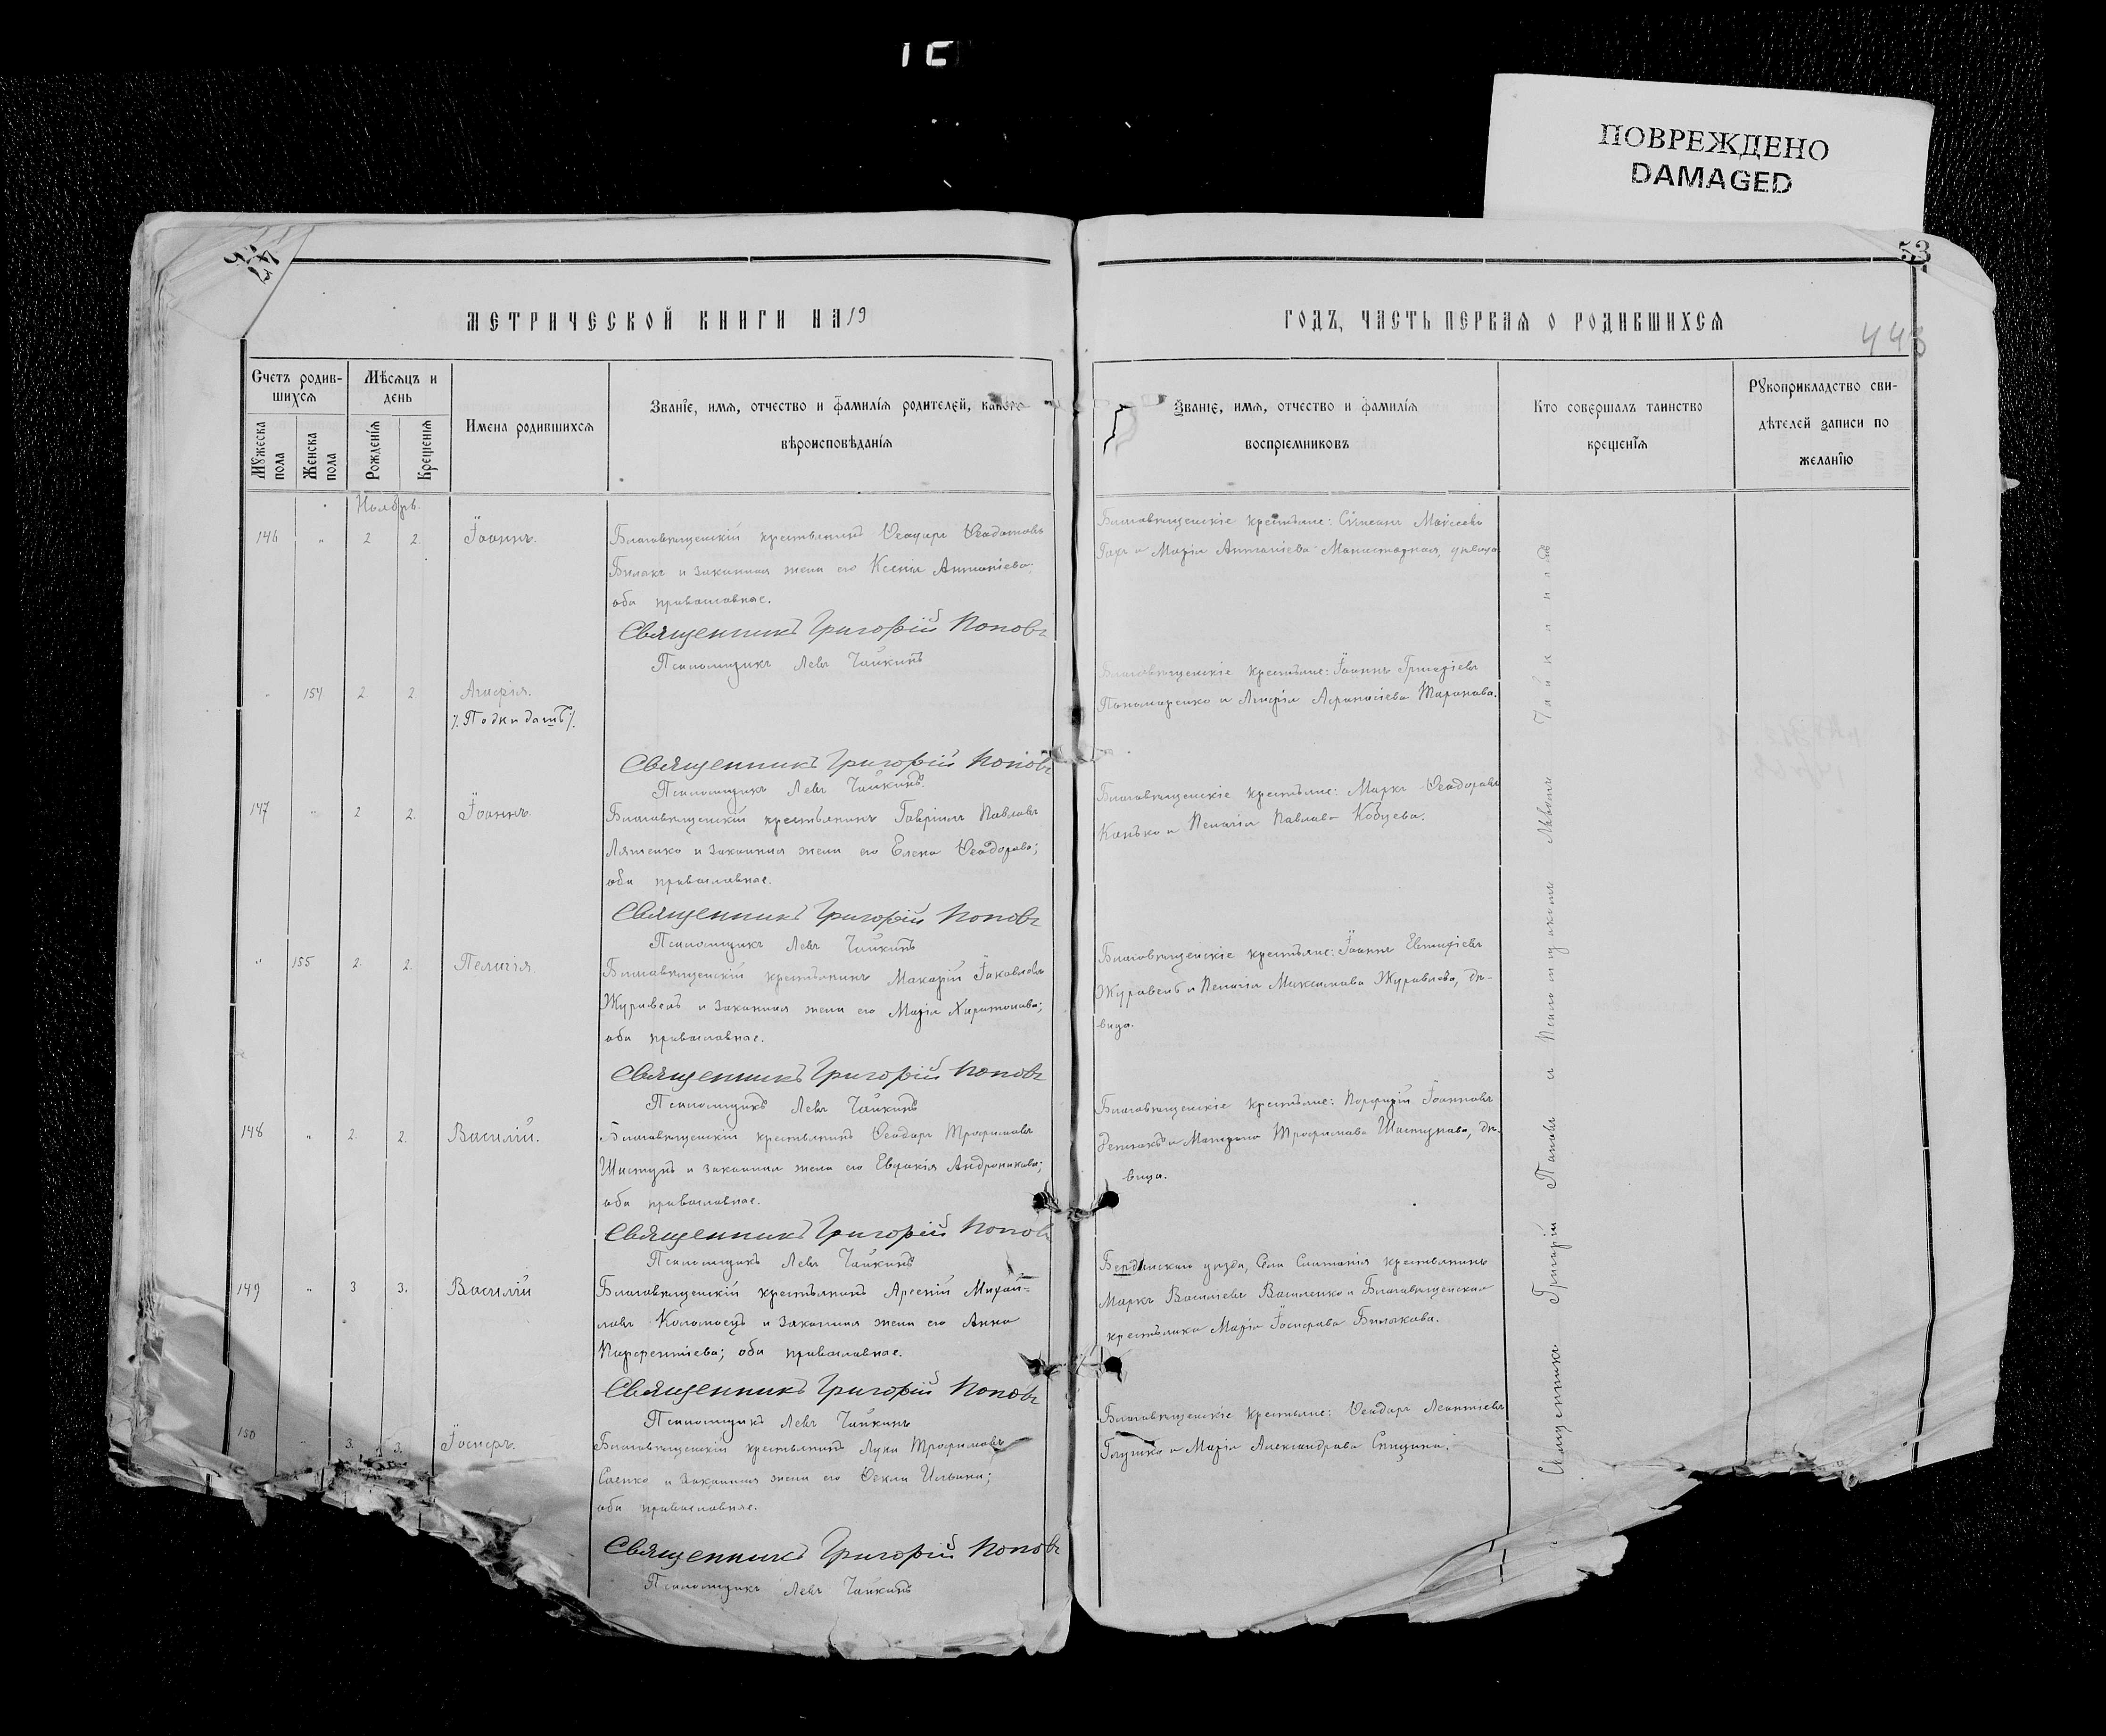 ПОВРЕЖДЕНО
DAMAGED
53
МЕТРИЧЕСКОЙ КНИГИ НА 19
ГОДЪ, ЧАСТЬ ПЕРВАЯ О РОДИВШИХСЯ
443
Счетъ родив-
шихся
Мужеска пола
Женска пола
Мѣсяцъ и
день
Рожденія
Крещенія
Имена родившихся
Званіе, имя, отчество и фамилія родителей, какого
вѣроисповѣданія
Званіе, имя, отчество и фамилія
воспріемниковъ
Кто совершалъ таинство
крещенія
Рукоприкладство сви-
дѣтелей записи по
желанію
Ноябрь.
146 " 2 2. Іоаннъ.
Благовѣщенскій крестьянинъ Ѳеодоръ Ѳеодотовъ
Билакъ и законная жена его Ксенія Антоніева;
оба православные.
Священникъ Григорій Поповъ
Псаломщикъ Левъ Чайкинъ
Благовѣщенскіе крестьяне: Сѵмеонъ Моисеевъ
и Марія Антоніева девица
" 154 2. 2. Агафія.
/.Подкидышъ/.
Священникъ Григорій Поповъ
Псаломщикъ Левъ Чайкинъ
Благовѣщенскіе крестьяне: Іоаннъ Григоріевъ
Пономаренко и Агафія Аѳанасіева Таранова.
147 " 2 2. Іоаннъ.
Благовѣщенскій крестьянинъ Гавріилъ Павловъ
Ляшенко и законная жена его Елена Ѳеодорова;
оба православные.
Священникъ Григорій Поповъ
Псаломщикъ Левъ Чайкинъ
Благовѣщенскіе крестьяне: Маркъ Ѳеодоровъ
Конько и Пелагія Павлова Кобцева.
" 155 2. 2. Пелагія.
Благовѣщенскій крестьянинъ Макарій Іаковлевъ
Журавель и законная жена его Марія Харитонова;
оба православные.
Священникъ Григорій Поповъ
Псаломщикъ Левъ Чайкинъ
Благовѣщенскіе крестьяне: Іоаннъ Евтихіевъ
Журавель и Пелагія Максимова Журавлева, дѣ-
вица.
148 " 2. 2. Василій.
Благовѣщенскій крестьянинъ Ѳеодоръ Трофимовъ
Шастунъ и законная жена его Евдокія Андроникова;
оба православные.
Священникъ Григорій Поповъ
Псаломщикъ Левъ Чайкинъ
Благовѣщенскіе крестьяне: Порфирій Іоанновъ
и Матрона Трофимова Шастунова, дѣ-
вица.
149 " 3 3. Василій
Благовѣщенскій крестьянинъ Арсеній Михай-
ловъ Коломоецъ и законная жена его Анна
Парфентіева; оба православные.
Священникъ Григорій Поповъ
Псаломщикъ Левъ Чайкинъ
Бердянскаго уѣзда, села крестьянинъ
Маркъ Василіевъ Василенко и Благовѣщенская
крестьянка Марія Іосифова Билакова.
150 " 3. 3. Іосифъ.
Благовѣщенскій крестьянинъ Лука Трофимовъ
Саенко и законная жена его Ѳекла Ильина;
оба православные.
Священникъ Григорій Поповъ
Псаломщикъ Левъ Чайкинъ
Благовѣщенскіе крестьяне: Ѳеодоръ Леонтіевъ
Глушко и Марія Александрова Спицина.
Священникъ Григорій Поповъ и Псаломщикомъ Львомъ Чайкинъ